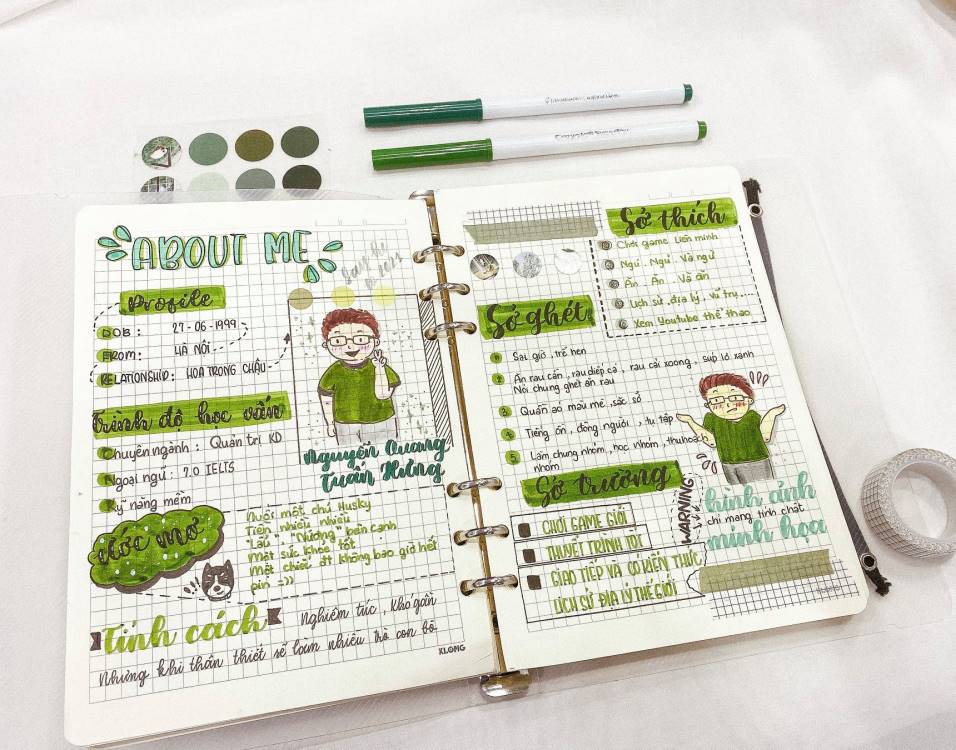 ABOUT ME
Profile
DOB : 27-06-1999
FROM : HÀ NỘI
RELATIONSHIP : HOA TRONG CHẬU
Trình độ học vấn
Chuyên ngành : Quản trị KD
Ngoại ngữ : 7.0 IELTS
Kỹ năng mềm
2021
Nguyễn Quang
Tuấn Hưng
Ước mơ
Nuôi một chú Husky
Tiền nhiều nhiều
"Lẩu", "Nướng" bên cạnh
Một sức khỏe tốt
Một chiếc đt không bao giờ hết
pin =))
Tính cách
Nghiêm túc, khó gần
Nhưng khi thân thiết sẽ làm nhiều trò con bò
KLONG
Sở thích
Chơi game Liên minh
Ngủ Ngủ Và ngủ
Ăn Ăn Và ăn
Lịch sử, địa lý, vũ trụ....
Xem Youtube thể thao
Sở ghét
1 Sai giờ, trễ hẹn
2 Ăn rau cần, rau diếp cá, rau cải xoong, súp lơ xanh
Nói chung ghét ăn rau
3 Quần áo màu mè, sặc sỡ
4 Tiếng ồn, đông người, tụ tập
5 Làm chung nhóm, học nhóm, thuhoạch
nhóm
Sở trường
CHƠI GAME GIỎI
THUYẾT TRÌNH TỐT
GIAO TIẾP VÀ CÓ KIẾN THỨC
LỊCH SỬ ĐỊA LÝ THẾ GIỚI
WARNING
hình ảnh
chỉ mang tính chất
minh họa